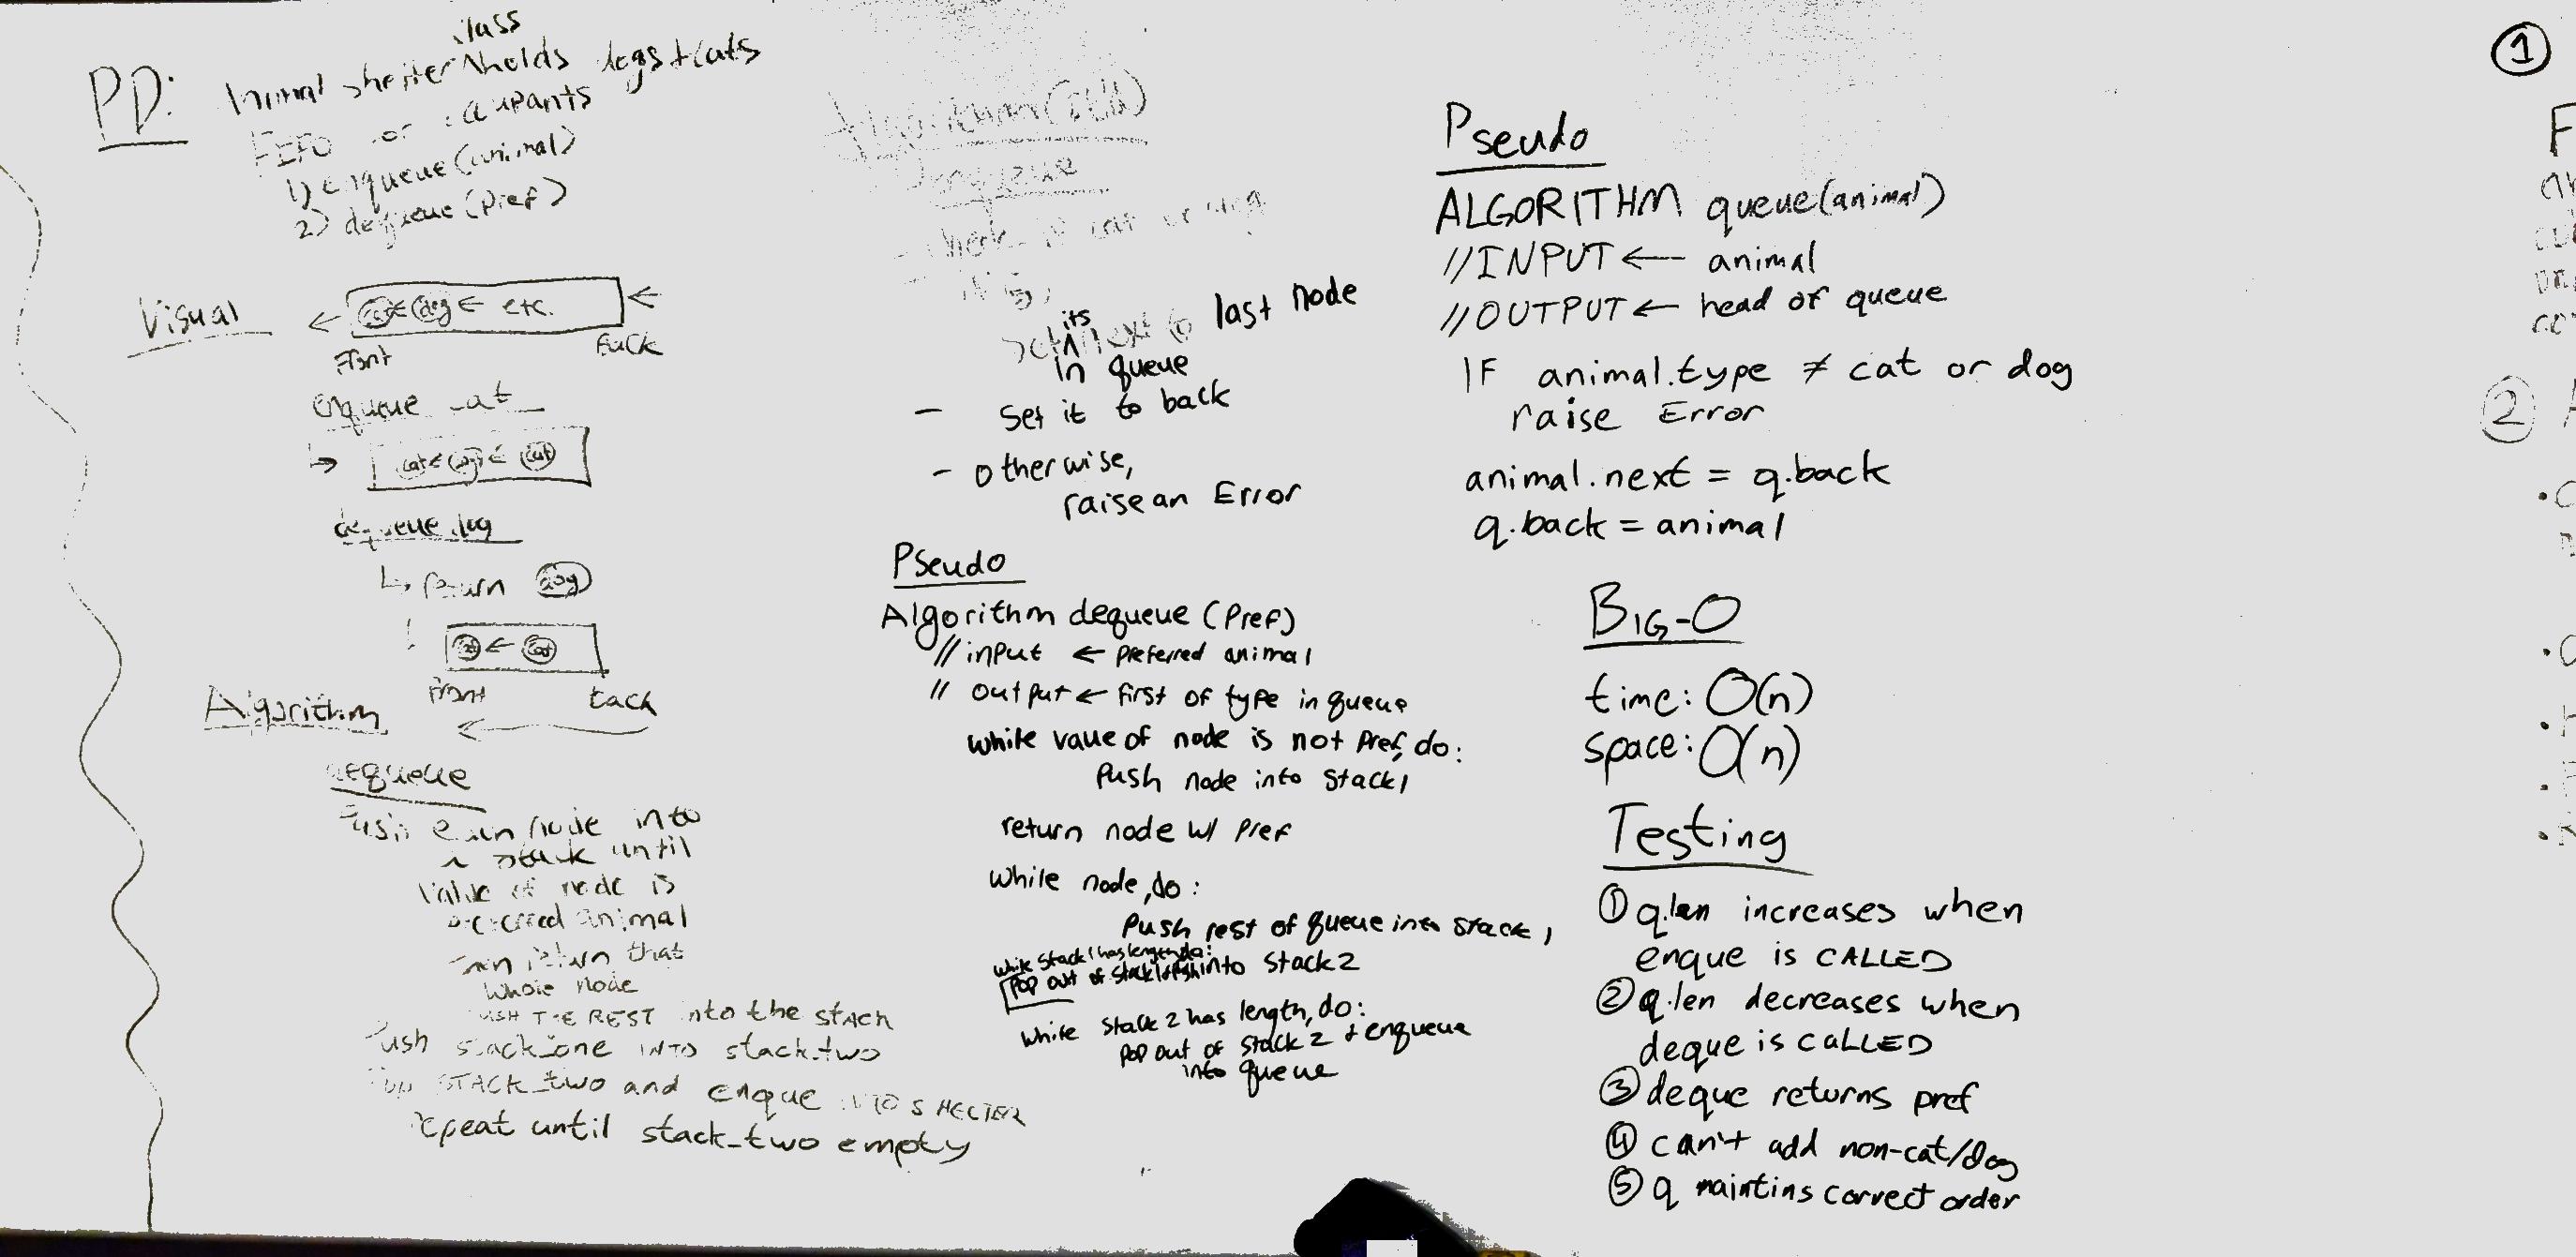 PD: Animal shelter class holds dogs + cats
FIFO for occupants
1) enqueue(animal)
2) dequeue(pref)
Visual
← cat ← dog ← etc. ←
Front back
enqueue cat
↳ cat ← dog ← cat
dequeue dog
↳ return dog
cat ← cat
Front back
←
Algorithm
dequeue
Push each node into
a stack until
value of node is
preferred animal
then return that
whole node
PUSH THE REST into the stack
Push stack_one INTO stack_two
Pop STACK_two and enque INTO SHELTER
repeat until stack_two empty
Algorithm
- check if cat or dog
set its next to last node
in queue
- set it to back
- otherwise,
raise an Error
Pseudo
Algorithm dequeue (Pref)
// input ← preferred animal
// output ← first of type in queue
while value of node is not pref, do:
Push node into stack1
return node w/ pref
while node, do:
Push rest of queue into stack 1
while stack1 has length, do:
Pop out of stack1 + push into stack2
while stack2 has length, do:
Pop out of stack2 + enqueue
into queue
Pseudo
ALGORITHM queue(animal)
//INPUT ← animal
//OUTPUT ← head of queue
IF animal.type ≠ cat or dog
raise Error
animal.next = q.back
q.back = animal
BIG-O
time: O(n)
space: O(n)
Testing
① q.len increases when
enque is CALLED
② q.len decreases when
deque is CALLED
③ deque returns pref
④ can't add non-cat/dog
⑤ q maintins correct order
①
F
②